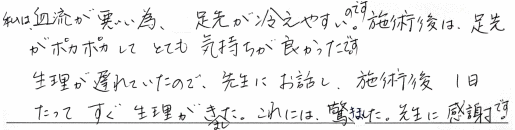 私は、血流が悪い為、足先が冷えやすいのです。施術後は、足先
がポカポカして とても 気持ちが良かったです
生理が遅れていたので、先生に お話し、施術後 1日
たって すぐ 生理がきました。これには、驚きました。先生に 感謝です